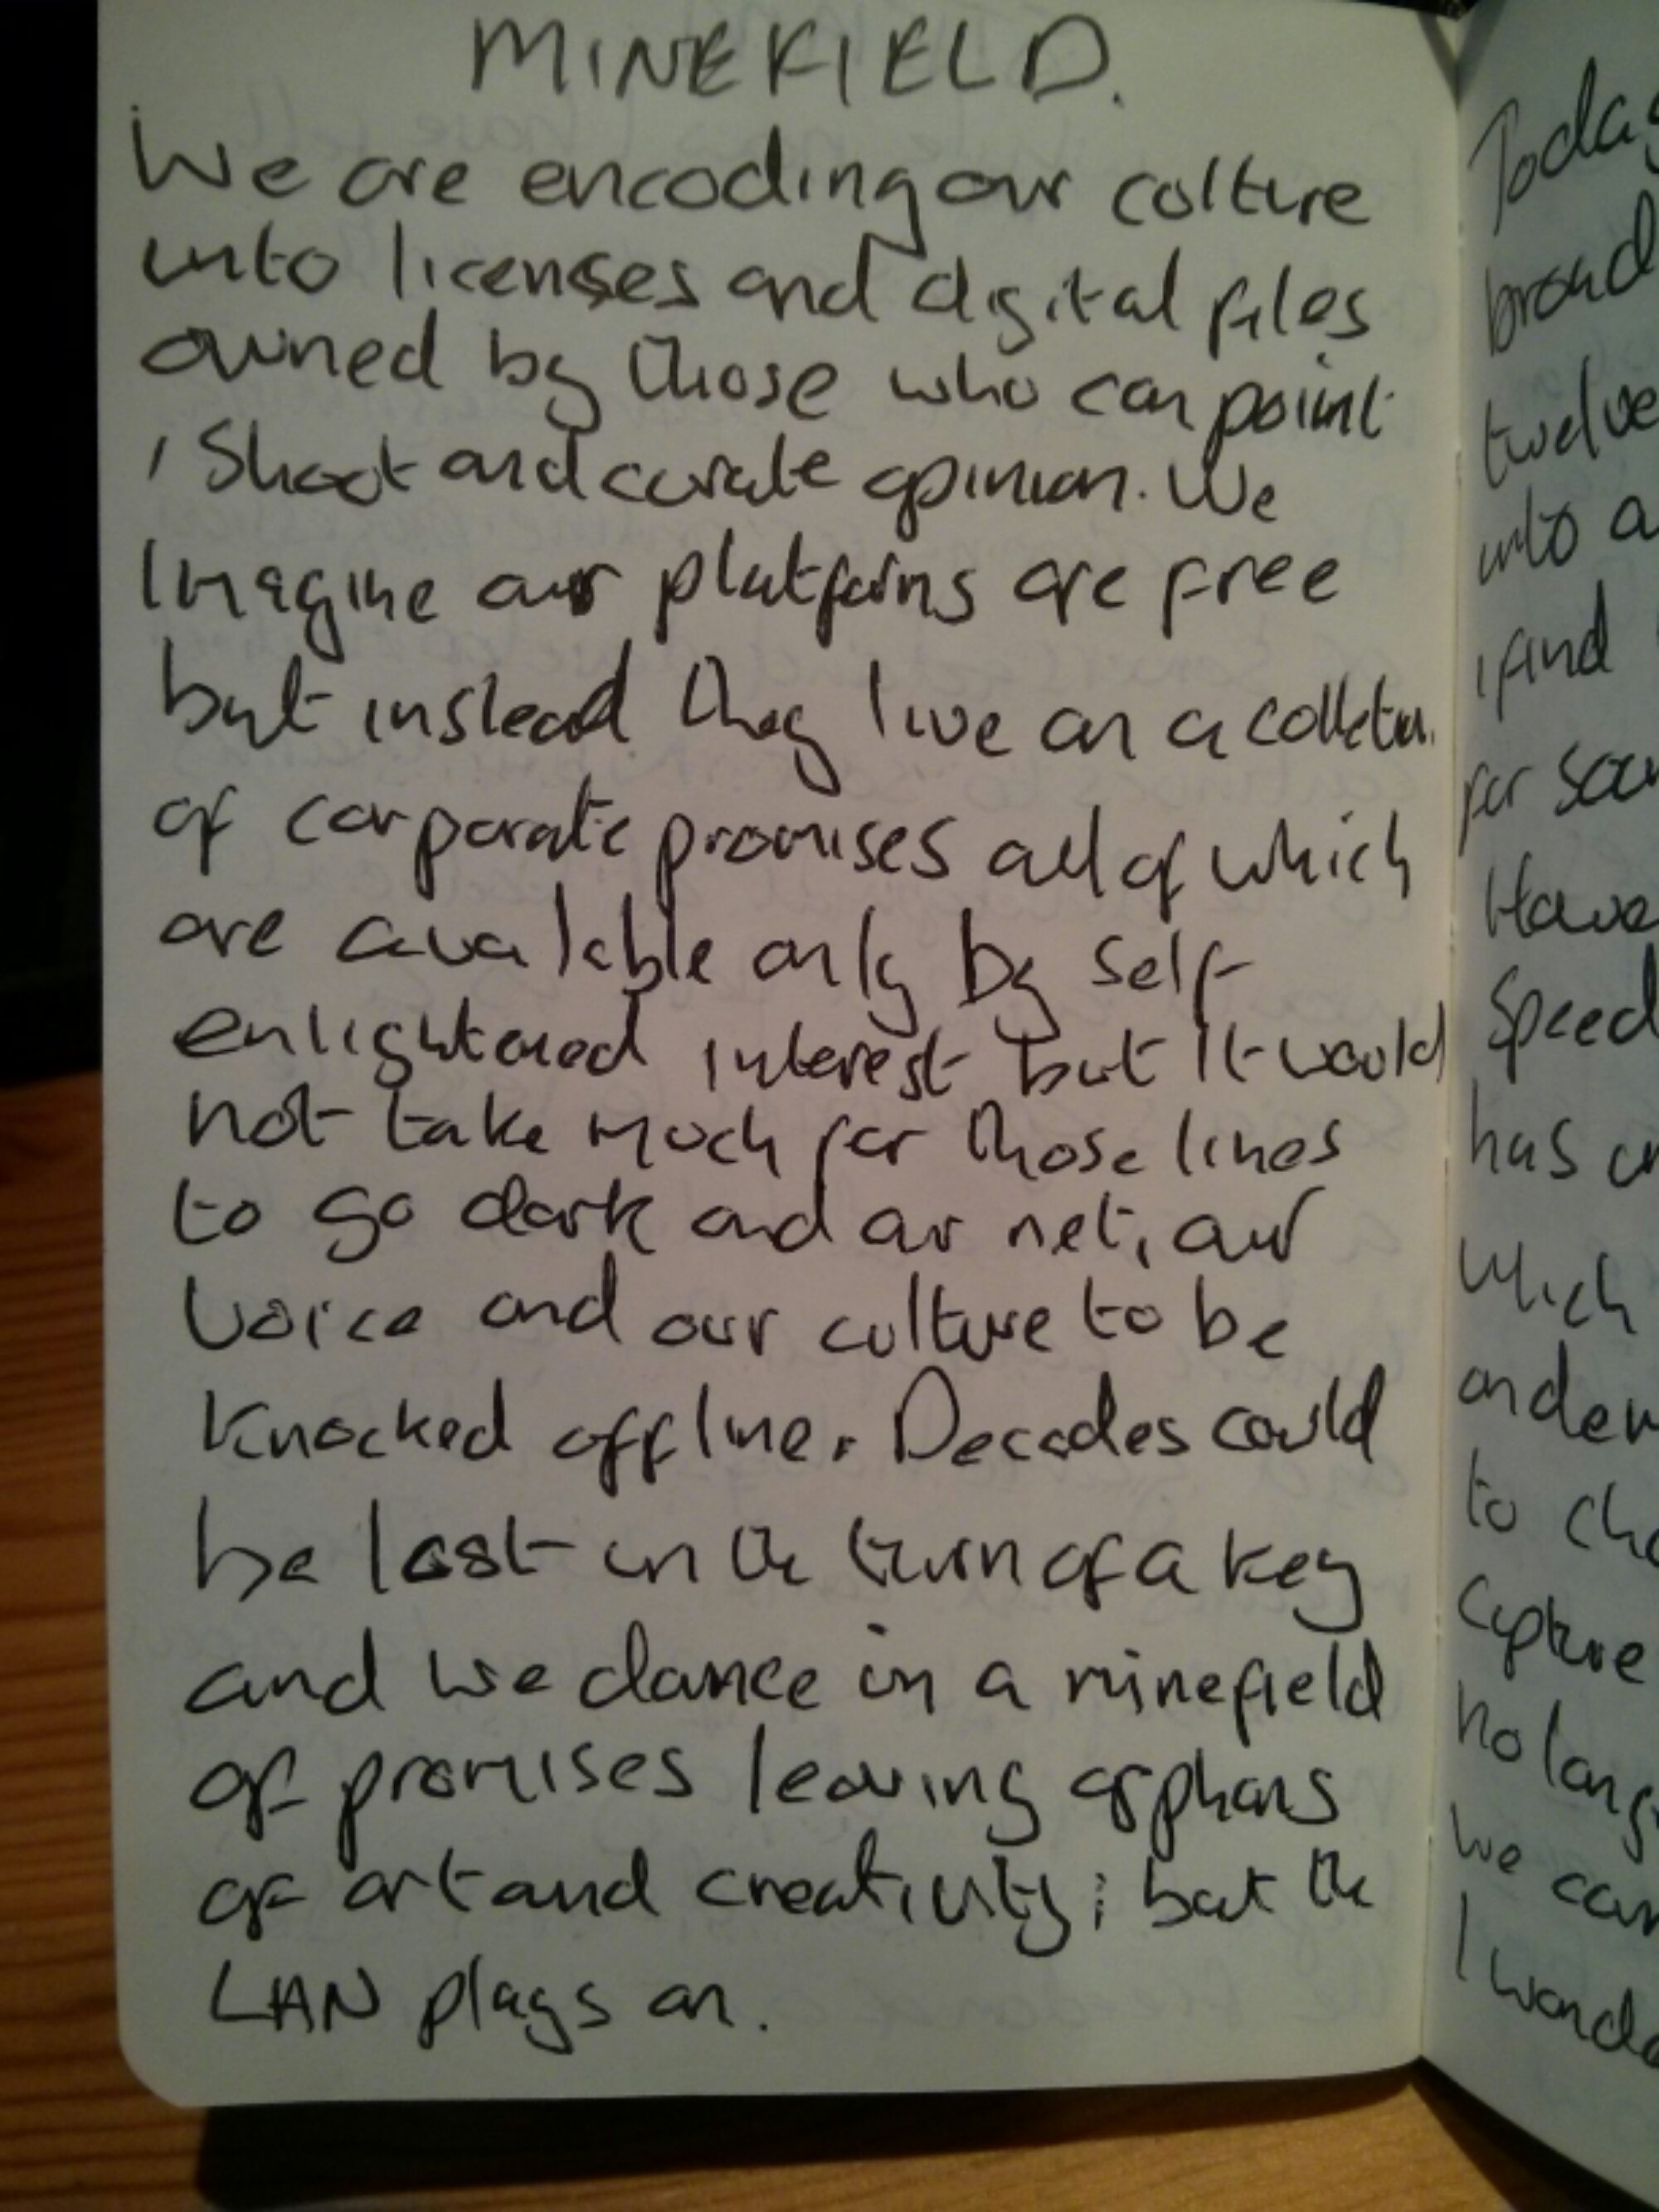 MINEFIELD.
We are encoding our colture
into licenses and digital files
owned by those who can point
, Shoot and curate opinion. We
Imagine our platforms are free
but instead they live on a
of corporate promises all of which
are available only by self-
enlightened interest but it would
not take much for those lines
to go dark and our net, our
voice and our culture to be
knocked offline. Decades could
be lost in the turn of a key
and we dance in a minefield
of promises leaving orphans
of art and creativity; but the
LAN plays on.
Today
broad
twelve
into a
I find
for
Have
Speed
has
which
to
capture
no long
we can
I